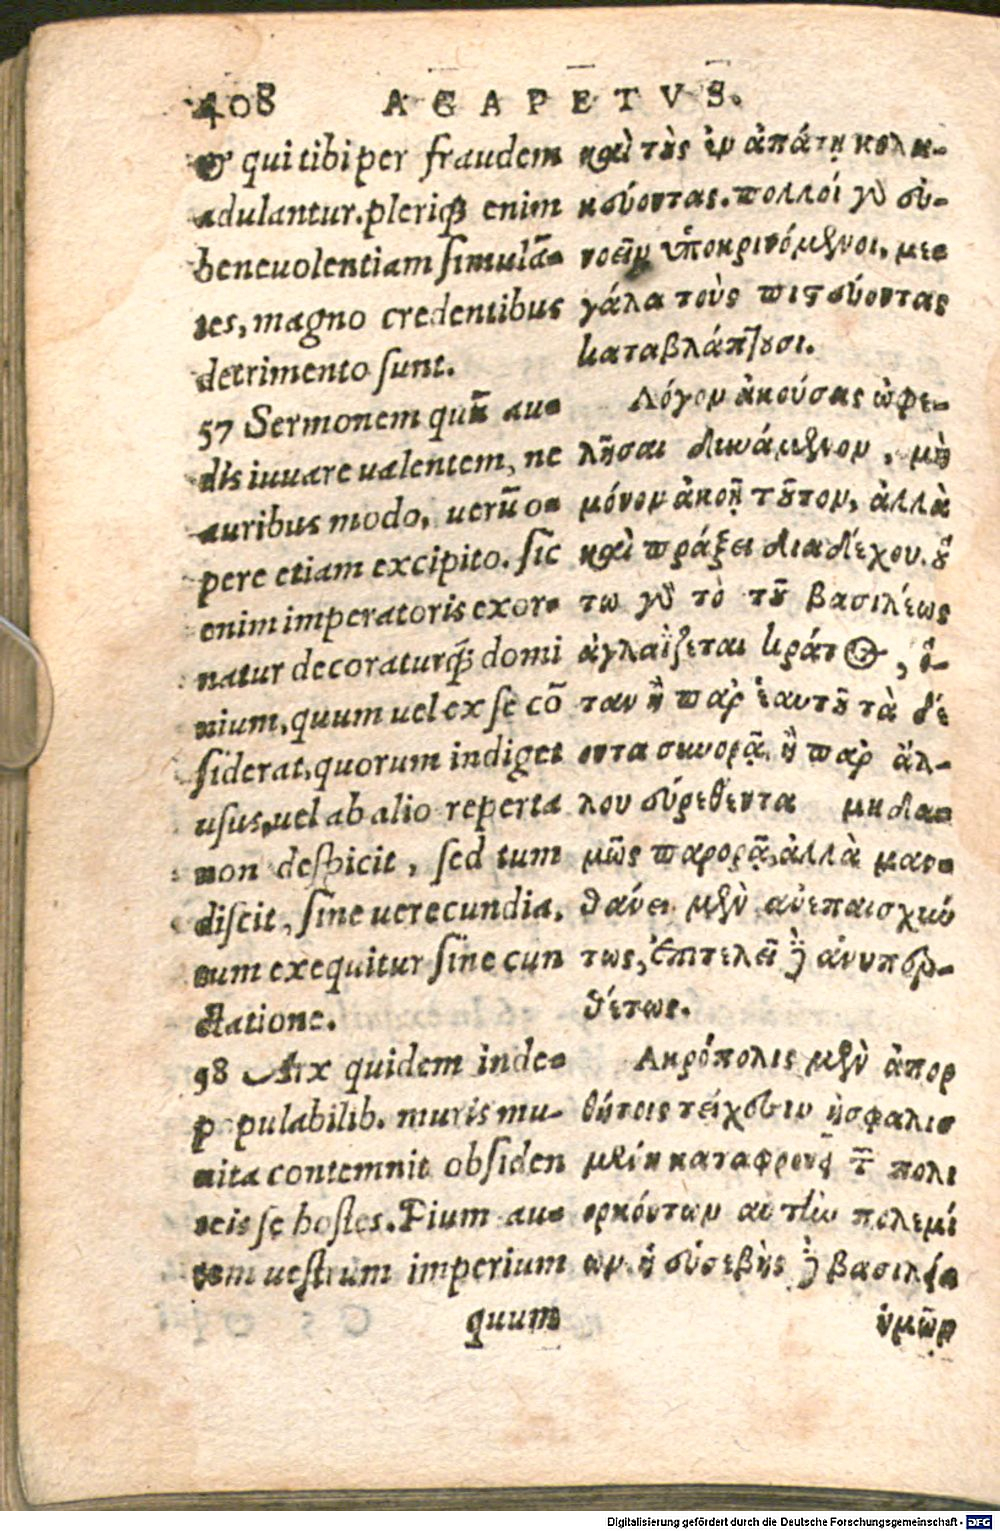 408 AGAPETVS.
& qui tibi per fraudem
adulantur. pleriq; enim
beneuolentiam simulā-
tes, magno credentibus
detrimento sunt.
57 Sermonem quē au-
dis iuuare ualentem, ne
auribus modo, uerū o-
pere etiam excipito. sic
enim imperatoris exor-
natur decoraturq́; domi
nium, quum uel ex se cō
siderat, quorum indiget
usus, uel ab alio reperta
non despicit, sed tum
discit, sine uerecundia,
tum exequitur sine cun
ctatione.
98 Arx quidem inde-
p pulabilib. muris mu-
nita contemnit obsiden
teis se hostes. Pium au-
tem uestrum imperium
quum
καὶ τοὺς ἐν ἀπάτῃ κολα-
κεύοντας. πολλοί γὸ συ-
νοεῖν ὑποκρινόμενοι, με-
γάλα τοὺς πιστεύοντας
καταβλάπτουσι.
Λόγον ἀκούσας ὠφε-
λῆσαι δυνάμενον, μὴ
μόνον ἀκοῇ τοῦτον, ἀλλὰ
καὶ πράξει διαδέχου. οὕ
τω γὸ τὸ τοῦ βασιλέως
ἀγλαΐζεται κράτος, ὅ-
ταν ἢ παρ ἑαυτοῦ τὰ δέ
οντα συνορᾷ, ἢ παρ ἄλ-
λου εὑρεθεντα μηδα-
μῶς παρορᾷ, ἀλλὰ μαν-
θάνει μὲν ἀνεπαισχύν
τως, ἐπιτελεῖ δὲ ἀνυπερ-
θέτως.
Ἀκρόπολις μὲν ἀπορ
θήτοις τείχεσιν ἠσφαλισ
μένη καταφρονεῖ τῶν πολι
ορκόντων αυτὴν πολεμί
ων. ἡ εὐσεβὴς δὲ βασιλεία
ὑμῶν
Digitalisierung gefördert durch die Deutsche Forschungsgemeinschaft - DFG